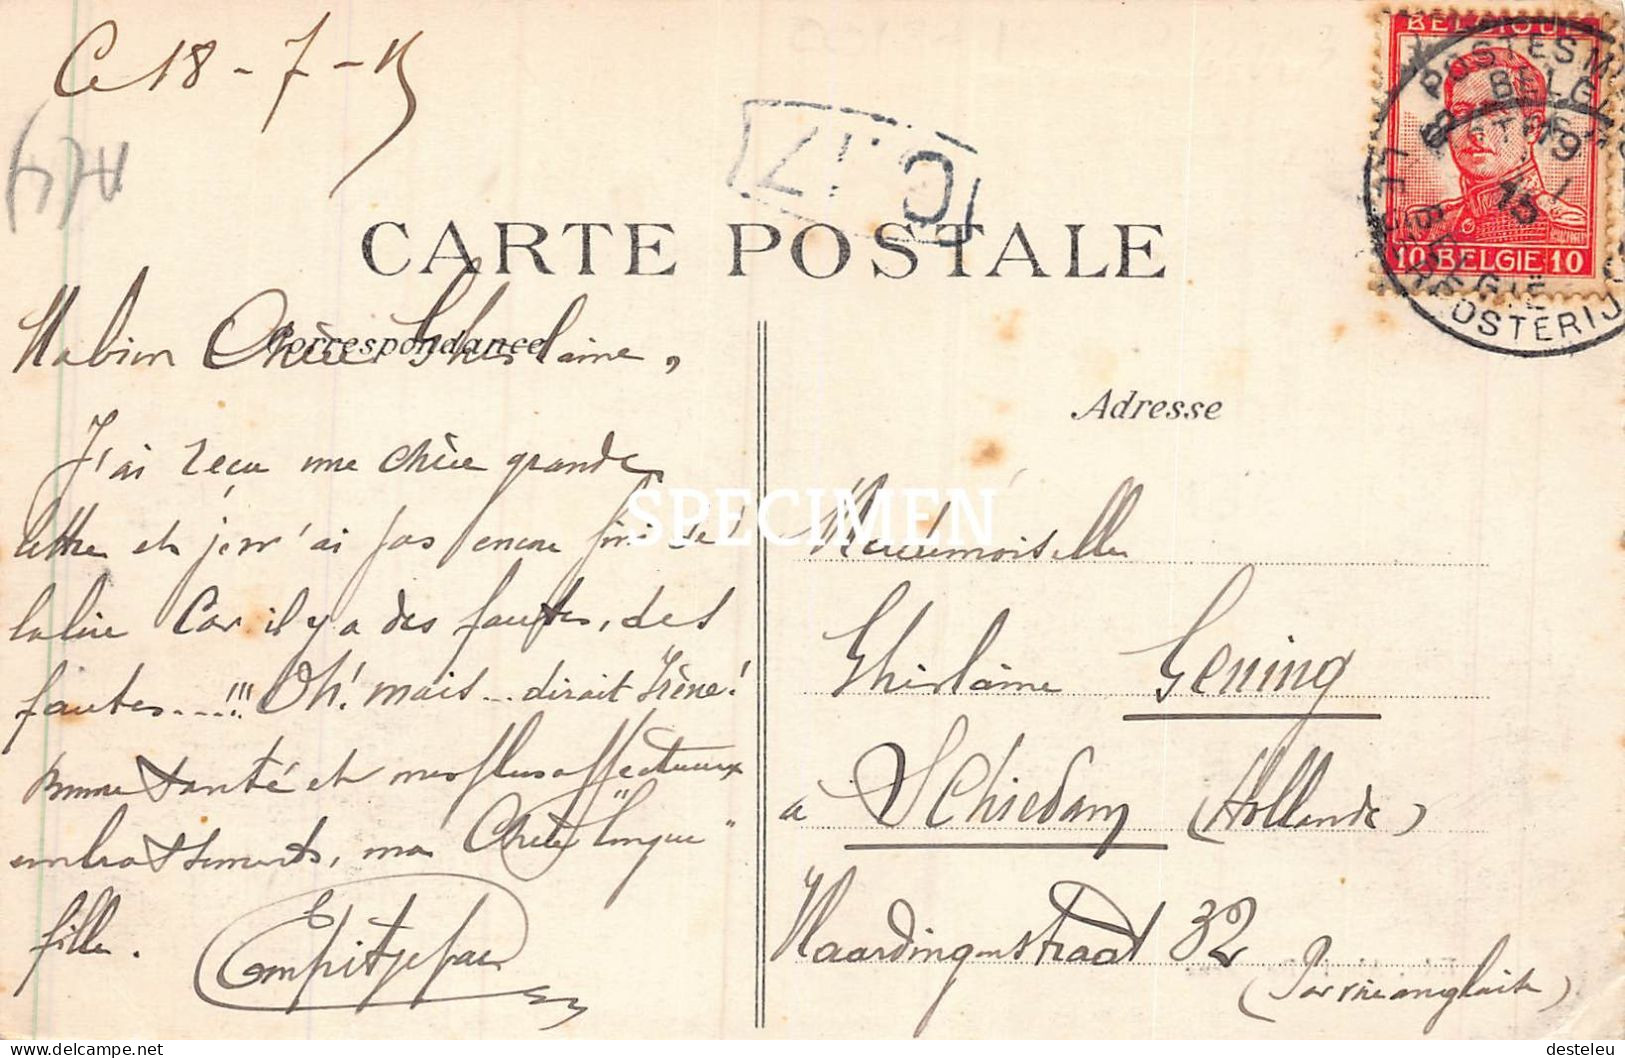 Ce 18-7-15
C.17
CARTE POSTALE
Correspondance
Ma bien Chère Ghislaine,
J'ai reçu une chère grande
lettre et je n'ai pas encore fini de
la lire Car il y a des fautes, des
fautes...!!! Oh! mais... dirait Irène!
Bonne santé et mes plus affectueux
embrassements, ma Chère "longue"
fille.
Adresse
Mademoiselle
Ghislaine Gening
à Schiedam (Hollande)
Vlaardingenstraat 32
(Par voie anglaise)
BELGIQUE
10 BELGIE 10
POSTES MILITAIRES
BELGIQUE
19
15
BELGIE
SPECIMEN
delcampe.net
desteleu